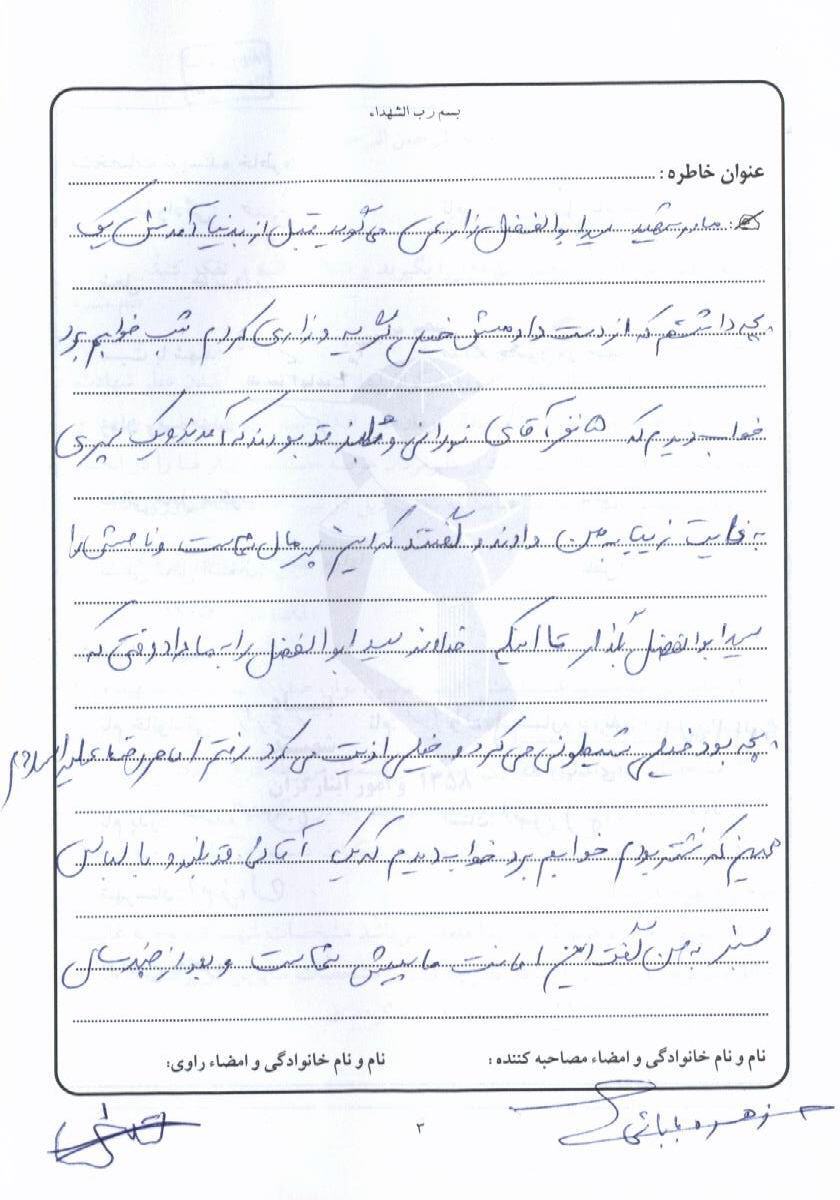 بسم رب الشهداء
عنوان خاطره:
مادر شهید سید ابوالفضل زارعی می گوید قبل از بدنیا آمدنش یک
بچه داشتم که از دست دادمش خیلی گریه و زاری کردم شب خوابم برد
خواب دیدم که ۵ نفر آقای نورانی و بلند قد بودند که آمدند و یک پسری
به غایت زیبا به من دادند و گفتند که این پسر مال شماست و نامش را
سید ابوالفضل بگذار تا اینکه خداوند سید ابوالفضل را به ما داد وقتی که
بچه بود خیلی شیطونی می کرد و خیلی اذیت می کرد رفتم امام رضا علیه السلام
همین که نشسته بودم خوابم برد خواب دیدم که یک آقائی قد بلند و با لباس
سبز به من گفت این امانت ما پیش شماست و بعد از چند سالی
نام و نام خانوادگی و امضاء مصاحبه کننده :
نام و نام خانوادگی و امضاء راوی:
زهره بابائی
۳